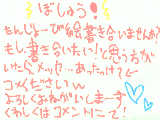 ぼしゅう!
たんじょーびの絵書き合いませんか?
もし、書き合いたい!と思うおかた
いたら、メッセ、あったかけて
コメください
よろしくおねがいしまーす。
くわしくはコメントにて!